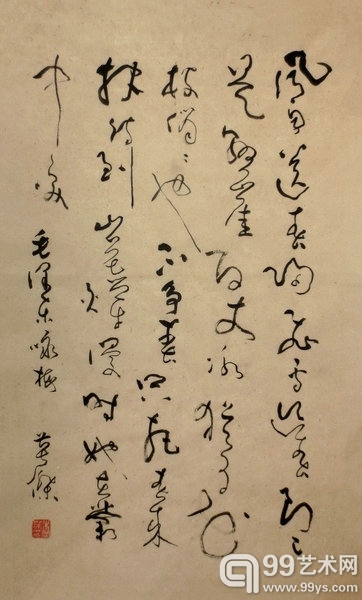 風雨送春归飛雪迎春到已
是懸崖百丈冰猶有花
枝俏〻也不争春只把春来
报待到山花烂漫時她在叢
中笑
毛澤东咏梅
99艺术网
www.99ys.com